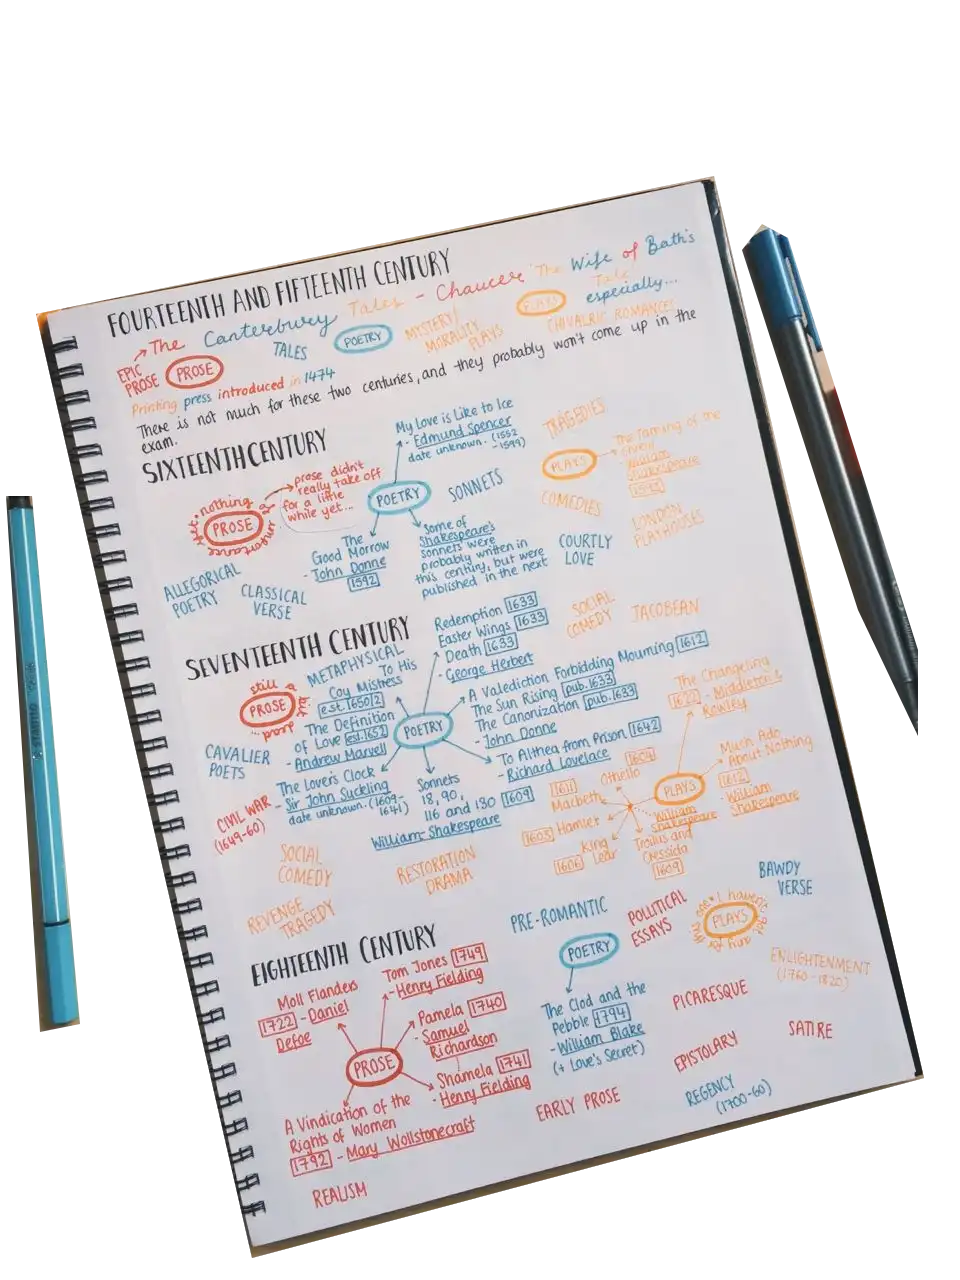 FOURTEENTH AND FIFTEENTH CENTURY
The Canterbury Tales - Chaucer 'The Wife of Bath's
Tale'
especially...
EPIC
PROSE
PROSE
TALES
POETRY
MYSTERY/
MORALITY
PLAYS
PLAYS
CHIVALRIC ROMANCES
Printing press introduced in 1474
There is not much for these two centuries, and they probably won't come up in the
exam.
SIXTEENTH CENTURY
PROSE
nothing
importance
yet
prose didn't
really take off
for a little
while yet...
My Love is Like to Ice
- Edmund Spencer
date unknown. (1552
- 1599)
POETRY
SONNETS
The
Good Morrow
- John Donne
1592
Some of
Shakespeare's
sonnets were
probably written in
this century, but were
published in the next
TRAGEDIES
PLAYS
The Taming of the
Shrew
William
Shakespeare
1592
COMEDIES
LONDON
PLAYHOUSES
COURTLY
LOVE
ALLEGORICAL
POETRY
CLASSICAL
VERSE
SEVENTEENTH CENTURY
still a
PROSE
but
METAPHYSICAL
To His
Coy Mistress
est. 1650/2
The Definition
of Love est. 1652
- Andrew Marvell
The Lover's Clock
- Sir John Suckling
date unknown. (1609-
1641)
POETRY
Redemption 1633
Easter Wings 1633
Death 1633
- George Herbert
A Valediction Forbidding Mourning 1612
The Sun Rising pub. 1633
The Canonization pub. 1633
- John Donne
To Althea from Prison 1642
- Richard Lovelace
Sonnets
18, 90,
116 and 130 1609
William Shakespeare
SOCIAL
COMEDY
JACOBEAN
The Changeling
1622 - Middleton &
Rowley
PLAYS
Much Ado
About Nothing
1612
- William
Shakespeare
William
Shakespeare
1604
Othello
1611
Macbeth
1603 Hamlet
King
1606 Lear
Troilus and
Cressida
1609
CAVALIER
POETS
CIVIL WAR
(1649-60)
SOCIAL
COMEDY
RESTORATION
DRAMA
REVENGE
TRAGEDY
EIGHTEENTH CENTURY
Moll Flanders
1722 - Daniel
Defoe
Tom Jones 1749
- Henry Fielding
Pamela 1740
- Samuel
Richardson
PROSE
Shamela 1741
- Henry Fielding
A Vindication of the
Rights of Women
1792 - Mary Wollstonecraft
REALISM
PRE-ROMANTIC
POETRY
The Clod and the
Pebble 1794
- William Blake
(+ Love's Secret)
POLITICAL
ESSAYS
PLAYS
I haven't got
for here
BAWDY
VERSE
ENLIGHTENMENT
(1760-1820)
PICARESQUE
SATIRE
EPISTOLARY
EARLY PROSE
REGENCY
(1700-60)
STABILO